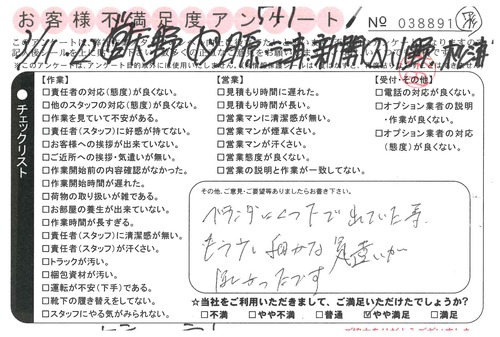 お客様不満足度アンケート
541
No 038891
チェックリスト
【作業】
□責任者の対応(態度)が良くない。
□他のスタッフの対応(態度)が良くない。
□作業を見ていて不安がある。
□責任者(スタッフ)に好感が持てない。
□お客様への挨拶が出来ていない。
□ご近所への挨拶・気遣いが無い。
□作業開始前の内容確認がなかった。
□作業開始時間が遅れた。
□荷物の取り扱いが雑である。
□お部屋の養生が出来ていない。
□作業時間が長すぎる。
□責任者(スタッフ)に清潔感が無い。
□責任者(スタッフ)が汗くさい。
□トラックが汚い。
□梱包資材が汚い。
□運転が不安(下手)である。
□靴下の履き替えをしてない。
□スタッフにやる気がみられない。
【営業】
□見積もり時間に遅れた。
□見積もり時間が長い。
□営業マンに清潔感が無い。
□営業マンが煙草くさい。
□営業マンが汗くさい。
□営業態度が良くない。
□営業の説明と作業が一致してない。
【受付・その他】
□電話の対応が良くない。
□オプション業者の説明
・作業が良くない。
□オプション業者の対応
(態度)が良くない。
その他、ご意見・ご要望等ありましたらお書き下さい。
ベランダにくつ下で出ていた事
もう少し細かな気遣いが
ほしかったです
☆当社をご利用いただきまして、ご満足いただけたでしょうか?
□不満 □やや不満 □普通 ☑やや満足 □満足